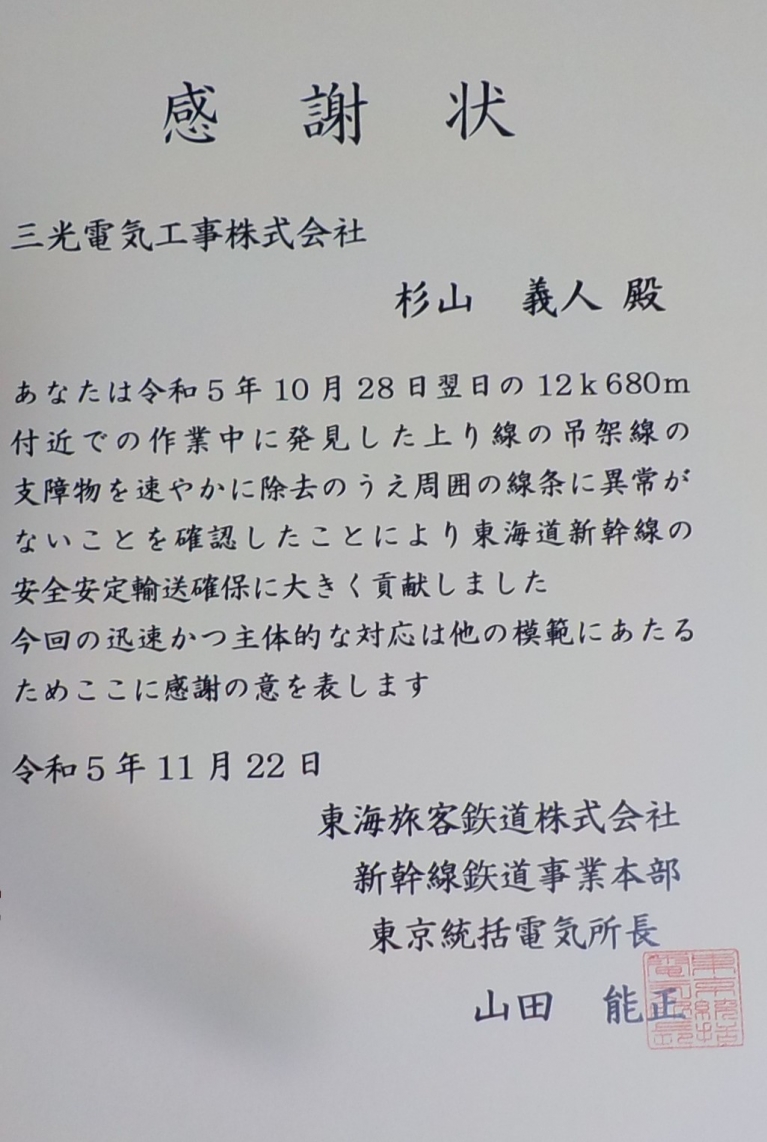 感謝状
三光電気工事株式会社
杉山 義人 殿
あなたは令和5年10月28日翌日の12k680m
付近での作業中に発見した上り線の吊架線の
支障物を速やかに除去のうえ周囲の線条に異常が
ないことを確認したことにより東海道新幹線の
安全安定輸送確保に大きく貢献しました
今回の迅速かつ主体的な対応は他の模範にあたる
ためここに感謝の意を表します
令和5年11月22日
東海旅客鉃道株式会社
新幹線鉃道事業本部
東京統括電気所長
山田 能正